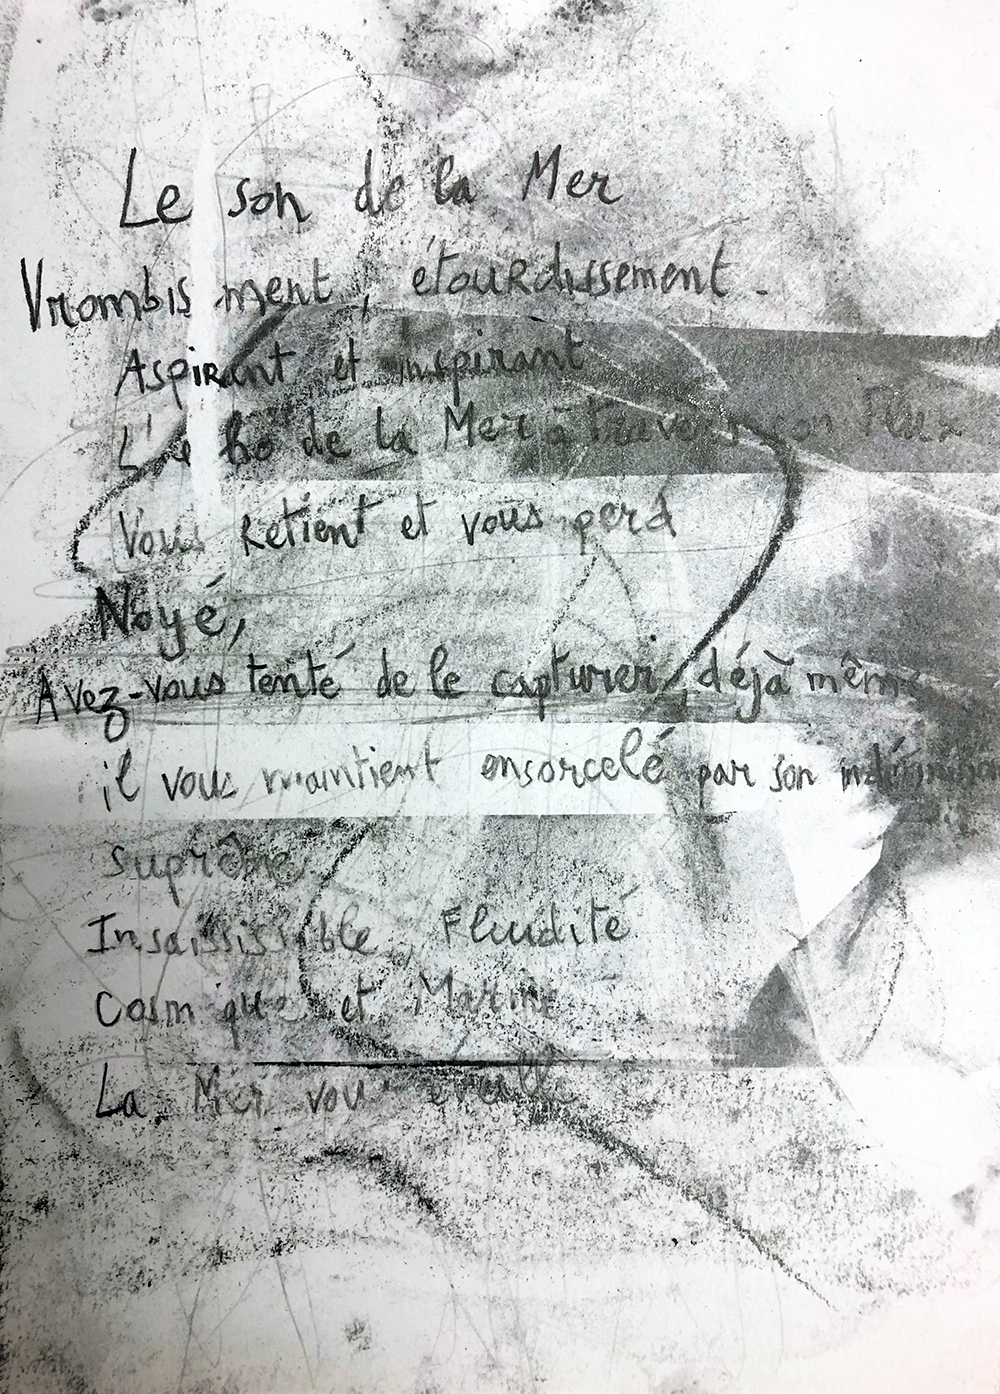 Le son de la Mer
Vrombissment, étourdissement.
Aspirant et inspirant
L'écho de la Mer à travers son Flux
Vous Retient et vous perd
Noyé,
Avez-vous tenté de le capturer, déjà même
il vous maintient ensorcelé par son
suprême
Insaississible, Fluidité
Cosmique et Marine
La Mer vous éveille